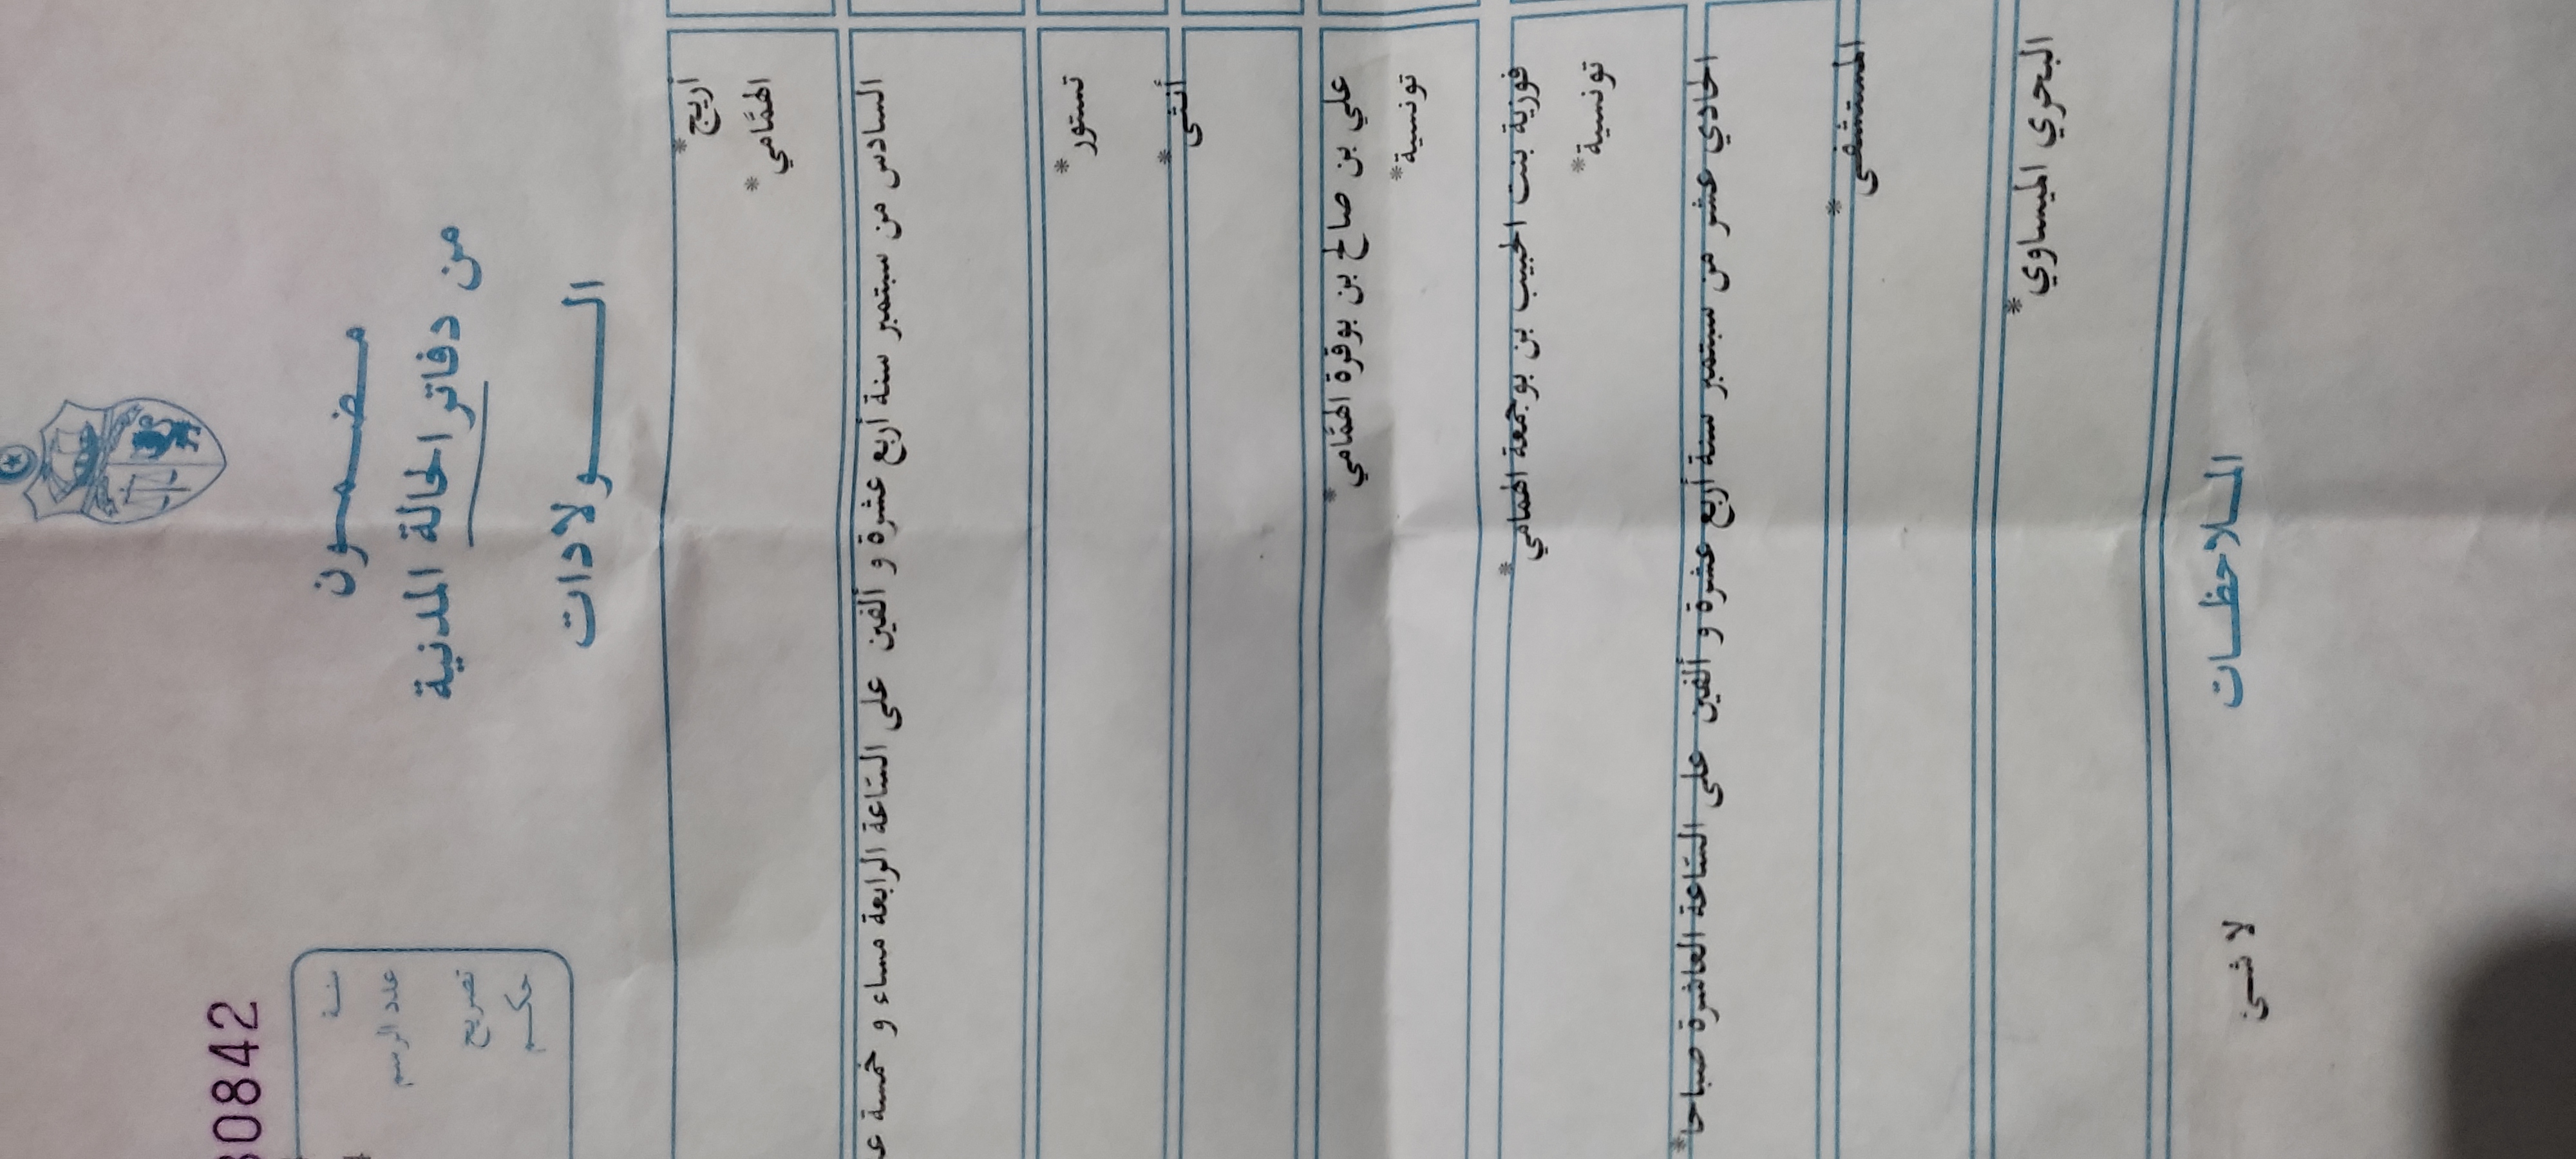 30842
سنة
عدد الرسم
تصريح
حكم
مضمون
من دفاتر الحالة المدنية
الولادات
أريج *
الهمّامي *
السادس من سبتمبر سنة أربع عشرة و ألفين على السّاعة الرابعة مساء و خمسة
تستور *
أنثى *
علي بن صالح بن بوقرة الهمّامي *
تونسية *
فوزية بنت الحبيب بن بوجمعة الهمامي *
تونسية *
الحادي عشر من سبتمبر سنة أربع عشرة و ألفين على السّاعة العاشرة صباحا *
المستشفى *
البحري الميساوي *
الملاحظات
لا شيئ